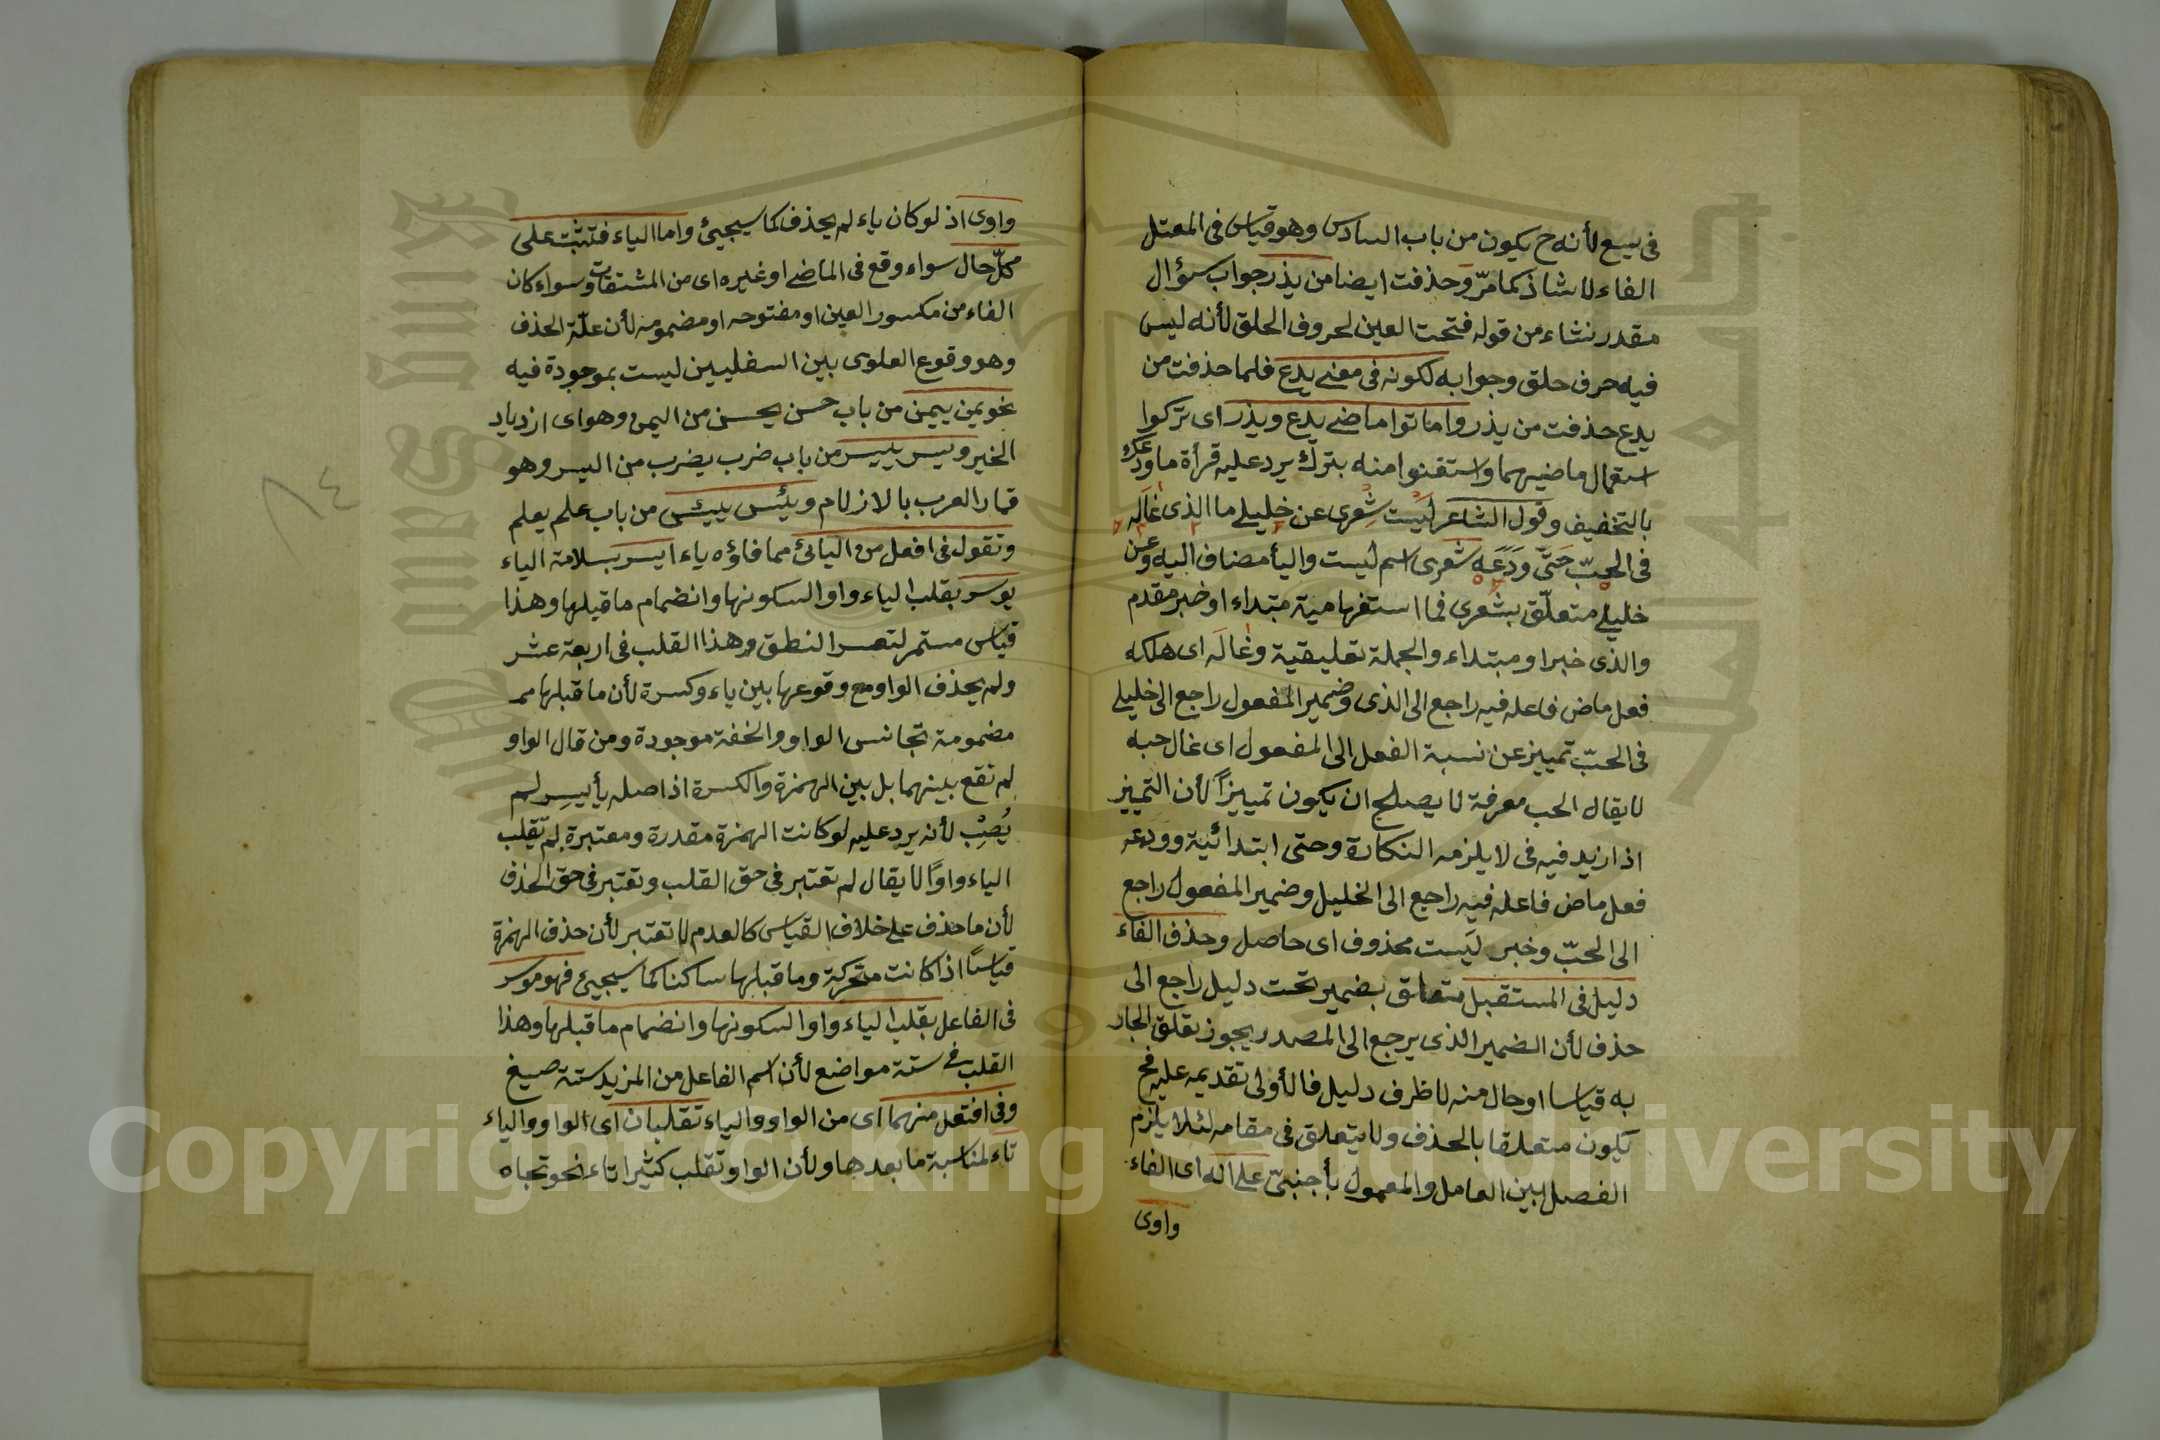 فى يسع لأنه ح يكون من باب السادس وهو قياس فى المعتل
الفاء لا شاذ كما مرّ وحذفت ايضا من يذر جواب سؤال
مقدر نشاء من قوله فتحت العين لحروف الحلق لأنه ليس
فيه حرف حلق وجوابه لكونه فى معنى يدع فلما حذفت من
يدع حذفت من يذر واماتوا ماضى يدع ويذر اى تركوا
استعمال ماضيهما واستغنوا منه بترك يرد عليه قرأة ما ودعك
بالتخفيف وقول الشاعر لَيْت شِعْرى عن خليلى ما الذى غَالَه
فى الحبّ حَتَّى وَدَعَه شعرى اسم ليت واليأ مضاف اليه وعن
خليلى متعلّق بشعرى فما استفهامية مبتداء او خبر مقدم
والذى خبر او مبتداء والجملة تعليقية وغَالَه اى هلكه
فعل ماض فاعله فيه راجع الى الذى وضمير المفعول راجع الى خليلى
فى الحبّ تمييز عن نسبة الفعل الى المفعول اى غال حبه
لا يقال الحب معرفة لا يصلح ان يكون تمييزاً لأن التمييز
اذا زيد فيه فى لا يلزمه النكارة وحتى ابتدائية وودعه
فعل ماض فاعله فيه راجع الى الخليل وضمير المفعول راجع
الى الحبّ وخبر لَيست محذوف اى حاصل وحذف الفاء
دليل فى المستقبل متعلق بضمير تحت دليل راجع الى
حذف لأن الضمير الذى يرجع الى المصدر يجوز تعلق الجار
به قياسا او حال منه لا ظرف دليل فالأولى تقديمه عليه فح
يكون متعلقا بالحذف ولا يتعلق فى مقامه لئلا يلزم
الفصل بين العامل والمعمول بأجنبىّ على انه اى الفاء
واوى
واوى اذ لو كان ياء لم يحذف كما سيجيئ واما الياء فتثبت على
كلّ حال سواء وقع فى الماضى او غيره اى من المشتقات وسواء كان
الفاء من مكسور العين او مفتوحه او مضمومه لأن علّة الحذف
وهو وقوع العلوى بين السفليين ليست بموجودة فيه
نحو يمن ييمن من باب حسن يحسن من اليمن وهو اى ازدياد
الخير ويسر ييسر من باب ضرب يضرب من اليسر وهو
قمار العرب بالازلام ويئس ييئس من باب علم يعلم
وتقول فى افعل من اليائى مما فاؤه ياء ايسر بسلامة الياء
يوسر بقلب الياء واوا لسكونها وانضمام ما قبلها وهذا
قياس مستمر لتعسر النطق وهذا القلب فى اربعة عشر
ولم يحذف الواو مع وقوعها بين ياء وكسرة لأن ما قبلها
مضمومة تجانس الواو والخفة موجودة ومن قال الواو
لم تقع بينهما بل بين الهمزة والكسرة اذ اصله يأيسِر لم
يُصِبْ لأنه يرد عليه لو كانت الهمزة مقدرة ومعتبرة لم تقلب
الياء واوًا لا يقال لم تعتبر فى حق القلب وتعتبر فى حق الحذف
لأن ما حذف على خلاف القياس كالعدم لا تعتبر لأن حذف الهمزة
قياسًا اذا كانت متحركة وما قبلها ساكنا كما سيجيئ فهو موسر
فى الفاعل بقلب الياء واوا لسكونها وانضمام ما قبلها وهذا
القلب فى ستة مواضع لأن اسم الفاعل من المزيد ستة صيغ
وفى افتعل منهما اى من الواو والياء تقلبان اى الواو والياء
تاء لمناسبة ما بعدها ولأن الواو تقلب كثيرا تاء نحو تجاه
٨٤
Copyright © King Saud University